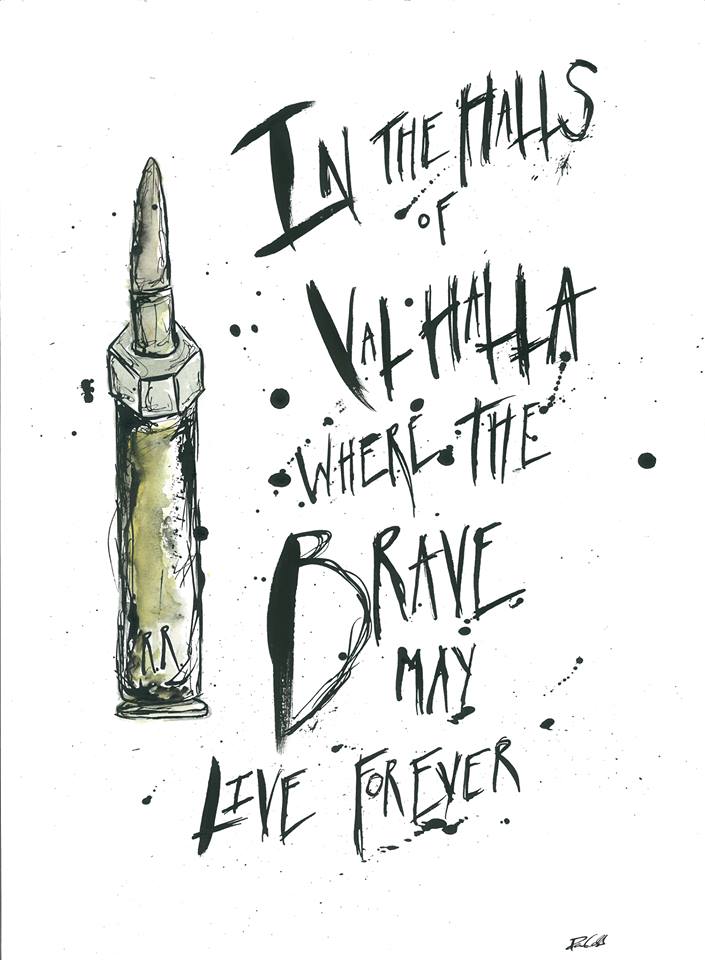 IN THE HALLS
OF
VALHALLA
WHERE THE
BRAVE
MAY
LIVE FOREVER
R.R.